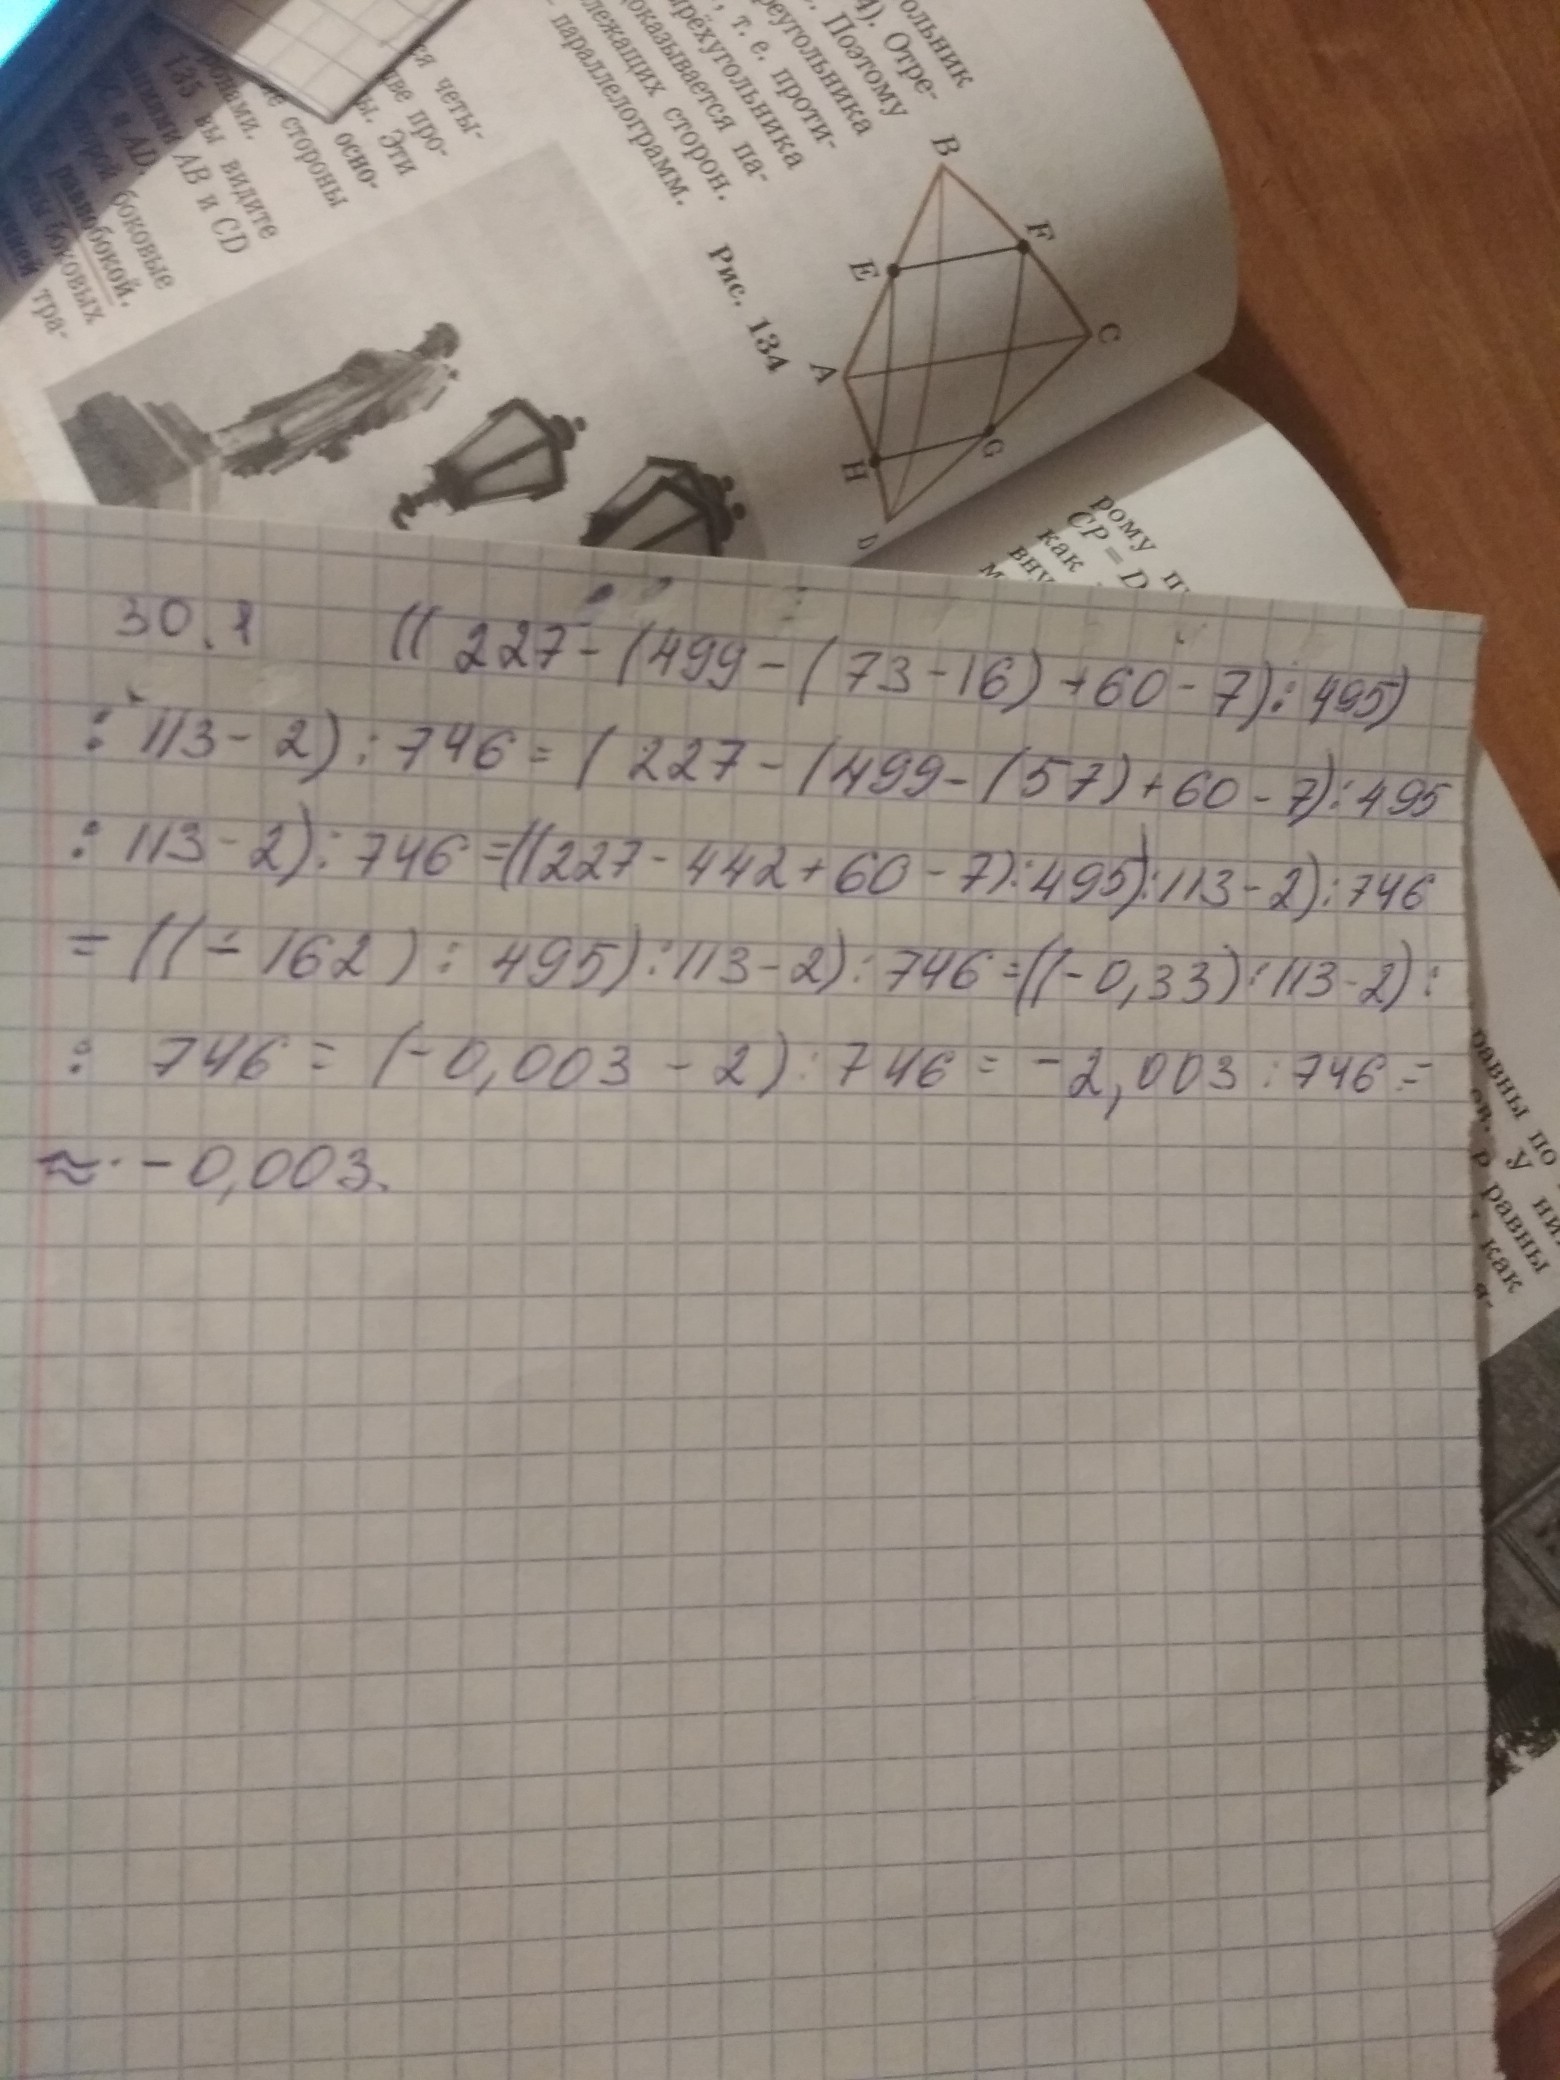 ольник
4). Отре-
. Поэтому
реугольника
, т. е. проти-
рёхугольника
доказывается па-
лежащих сторон.
параллелограмм.
B
F
E
C
A
G
H
D
Рис. 134
ся четы-
две про-
ы. Эти
осно-
е стороны
онами.
135 вы видите
ниями AB и CD
и AD.
боковые
равнобокой.
боковых
тра-
рому
CP = D
как
вну
30.1 ((227-(499-(73-16)+60-7):495)
:113-2):746=(227-(499-(57)+60-7):495
:113-2):746=((227-442+60-7):495):113-2):746
=((-162):495):113-2):746=((-0,33):113-2):
:746=(-0,003-2):746=-2,003:746=
≈-0,003.
равны по
ов. У
равны
как